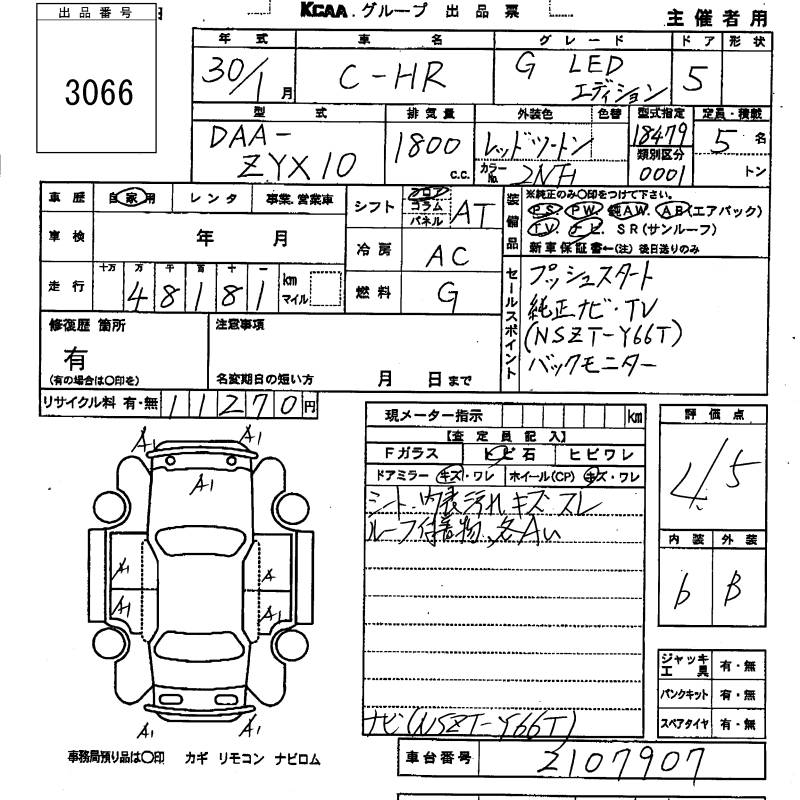 出品番号
3066
KCAA.グループ 出品票
主催者用
年式 車名 グレード ドア 形状
30/1月 C-HR G LED エディション 5
型式 排気量 外装色 色替 型式指定 定員・積載
DAA-ZYX10 1800 c.c. レッドツートン 18479 5名
カラーNo. 2NH 類別区分 0001 トン
車歴 自家用 レンタ 事業、営業車
シフト フロア コラム パネル AT
装備品 ※純正のみ○印をつけて下さい。
PS. PW. 純AW. AB(エアバック)
TV ナビ. SR(サンルーフ)
新車保証書←(注)後日送りのみ
車検 年 月
冷房 AC
走行 十万 万 千 百 十 一
48181 km マイル
燃料 G
セールスポイント
プッシュスタート
純正ナビ・TV
(NSZT-Y66T)
バックモニター
修復歴 箇所
有
(有の場合は○印を)
注意事項
名変期日の短い方 月 日まで
リサイクル料 有・無 11270円
現メーター指示 km
【査定員記入】
Fガラス トビ石 ヒビワレ
ドアミラー キズ・ワレ ホイール(CP) キズ・ワレ
シート、内装汚れ キズ スレ
ルーフ付着物、各Aい
ナビ(NSZT-Y66T)
評価点
4.5
内装 外装
b B
ジャッキ工具 有・無
パンクキット 有・無
スペアタイヤ 有・無
A1 A1
A1
A1 A
A1 A1
A1 A1
事務局預り品は○印 カギ リモコン ナビロム
車台番号 2107907